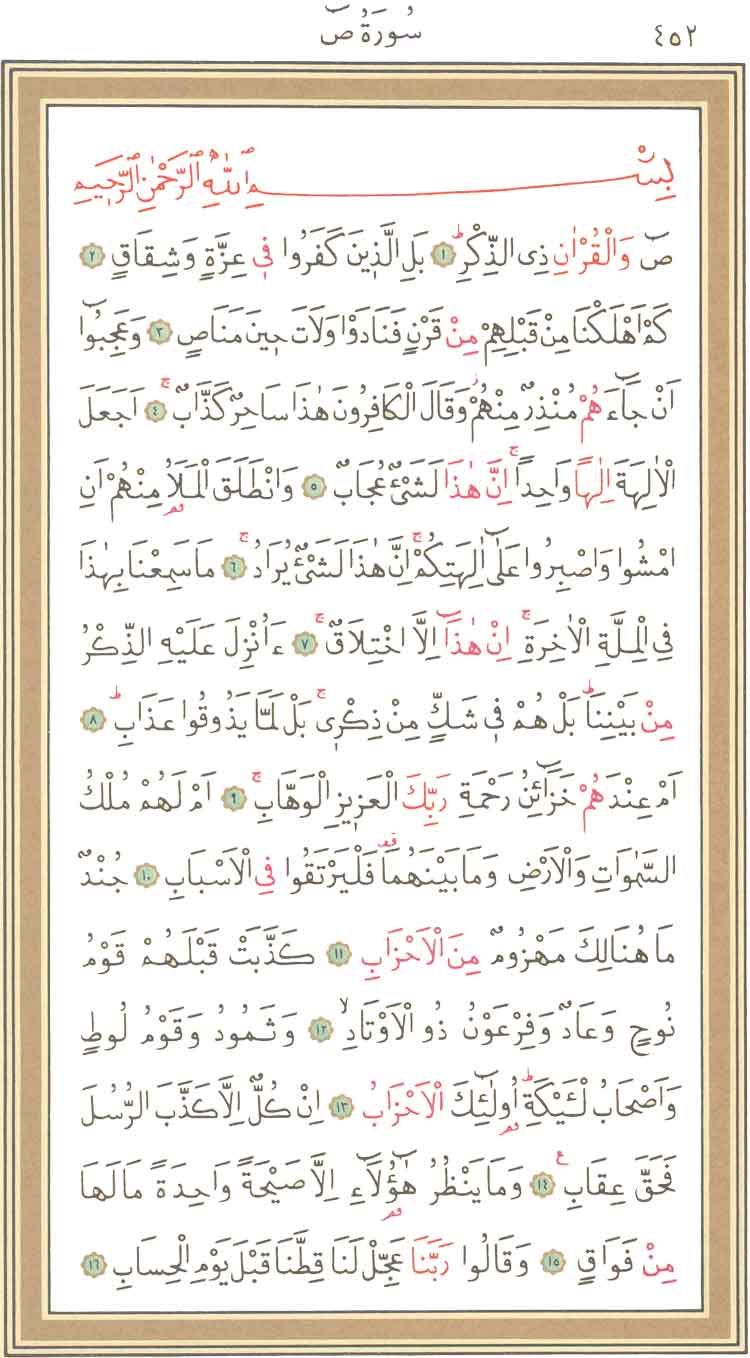 سُورَةُ صٓ ٤٥٢
بِسْمِ اللّٰهِ الرَّحْمٰنِ الرَّحٖيمِ
صٓ وَالْقُرْاٰنِ ذِى الذِّكْرِؕ ١ بَلِ الَّذٖينَ كَفَرُوا فٖى عِزَّةٍ وَشِقَاقٍ ٢
كَمْ اَهْلَكْنَا مِنْ قَبْلِهِمْ مِنْ قَرْنٍ فَنَادَوْا وَلَاتَ حٖينَ مَنَاصٍ ٣ وَعَجِبُٓوا
اَنْ جَٓاءَهُمْ مُنْذِرٌ مِنْهُمْؗ وَقَالَ الْكَافِرُونَ هٰذَا سَاحِرٌ كَذَّابٌۚ ٤ اَجَعَلَ
الْاٰلِهَةَ اِلٰهًا وَاحِدًاۚ اِنَّ هٰذَا لَشَیْءٌ عُجَابٌ ٥ وَانْطَلَقَ الْمَلَاُ مِنْهُمْ اَنِ
امْشُوا وَاصْبِرُوا عَلٰٓى اٰلِهَتِكُمْۚ اِنَّ هٰذَا لَشَیْءٌ يُرَادُۚ ٦ مَا سَمِعْنَا بِهٰذَا
فِى الْمِلَّةِ الْاٰخِرَةِۚ اِنْ هٰذَٓا اِلَّا اخْتِلَاقٌۚ ٧ ءَاُنْزِلَ عَلَيْهِ الذِّكْرُ
مِنْ بَيْنِنَاؕ بَلْ هُمْ فٖى شَكٍّ مِنْ ذِكْرٖىۚ بَلْ لَمَّا يَذُوقُوا عَذَابِؕ ٨
اَمْ عِنْدَهُمْ خَزَٓائِنُ رَحْمَةِ رَبِّكَ الْعَزٖيزِ الْوَهَّابِۚ ٩ اَمْ لَهُمْ مُلْكُ
السَّمٰوَاتِ وَالْاَرْضِ وَمَا بَيْنَهُمَا فَلْيَرْتَقُوا فِى الْاَسْبَابِ ١٠ جُنْدٌ
مَا هُنَالِكَ مَهْزُومٌ مِنَ الْاَحْزَابِ ١١ كَذَّبَتْ قَبْلَهُمْ قَوْمُ
نُوحٍ وَعَادٌ وَفِرْعَوْنُ ذُو الْاَوْتَادِۙ ١٢ وَثَمُودُ وَقَوْمُ لُوطٍ
وَاَصْحَابُ لْـَٔيْكَةِؕ اُو۬لٰٓئِكَ الْاَحْزَابُ ١٣ اِنْ كُلٌّ اِلَّا كَذَّبَ الرُّسُلَ
فَحَقَّ عِقَابِ ١٤ وَمَا يَنْظُرُ هٰٓؤُ۬لَٓاءِ اِلَّا صَيْحَةً وَاحِدَةً مَا لَهَا
مِنْ فَوَاقٍ ١٥ وَقَالُوا رَبَّنَا عَجِّلْ لَنَا قِطَّنَا قَبْلَ يَوْمِ الْحِسَابِ ١٦